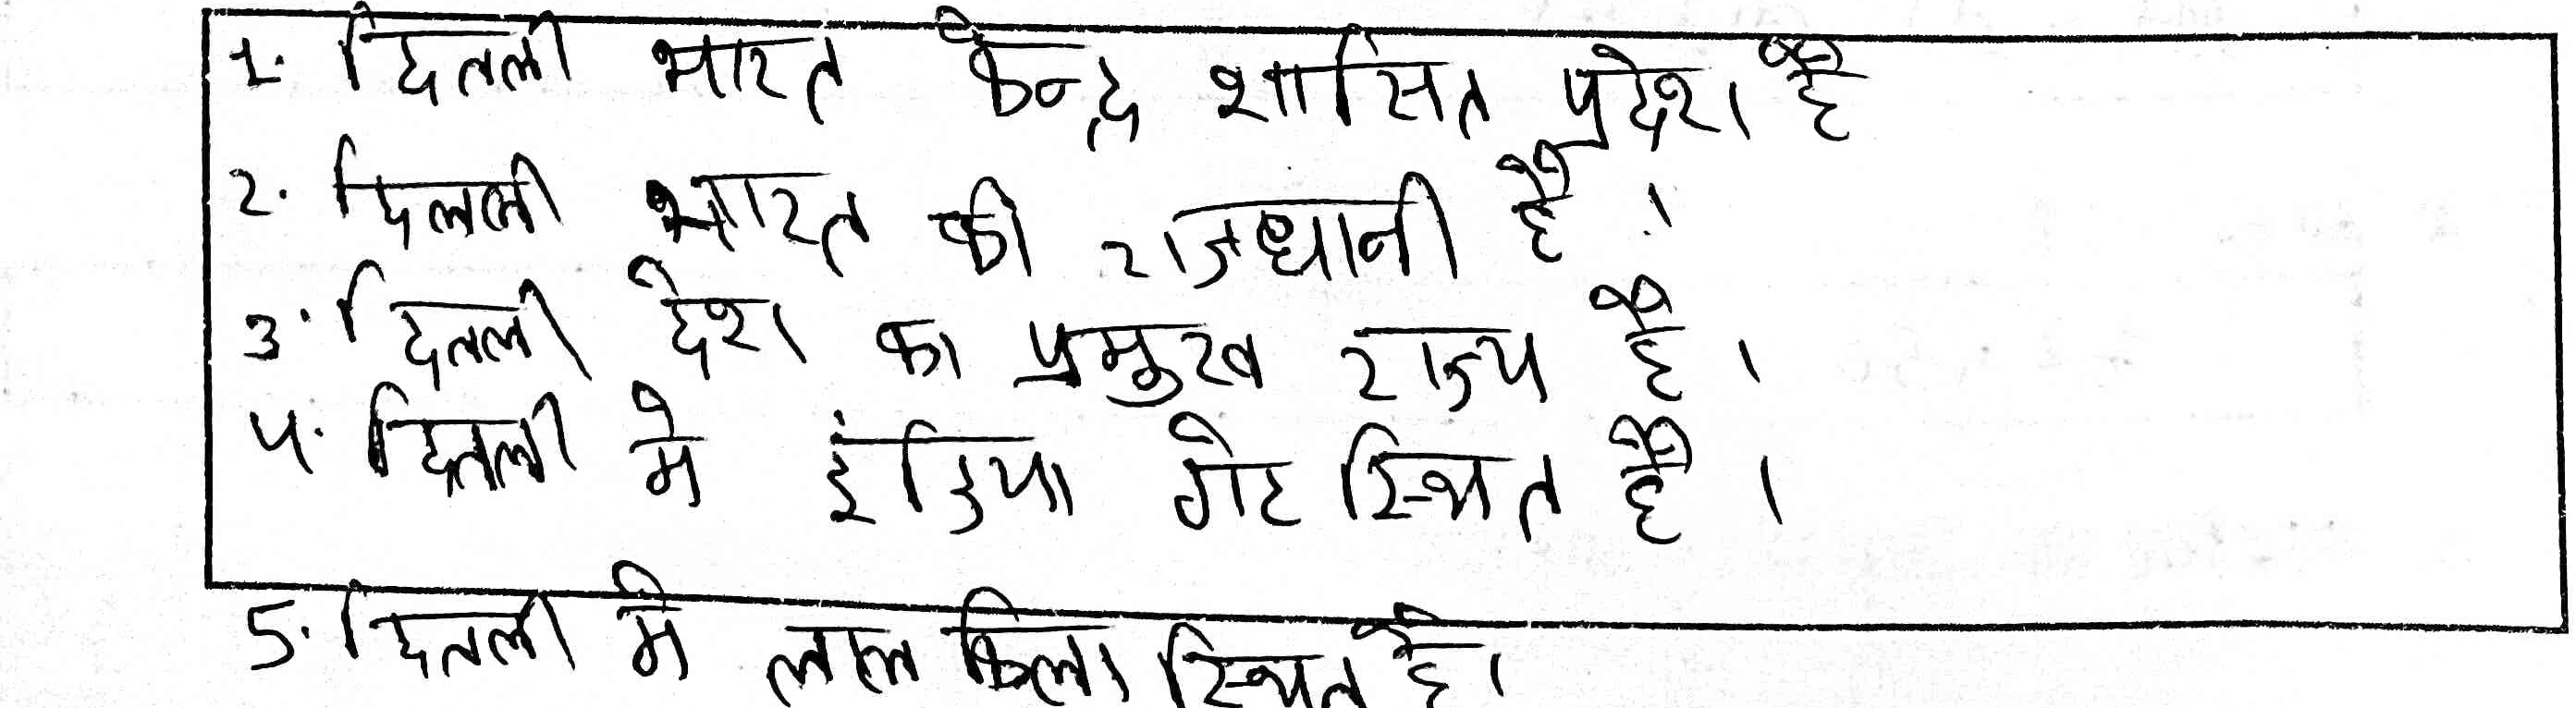 1. दिल्ली भारत केन्द्र शासित प्रदेश है
2. दिल्ली भारत की राजधानी है।
3. दिल्ली देश का प्रमुख राज्य है।
4. दिल्ली मे इंडिया गेट स्थित है।
5. दिल्ली मे लाल किला स्थित है।